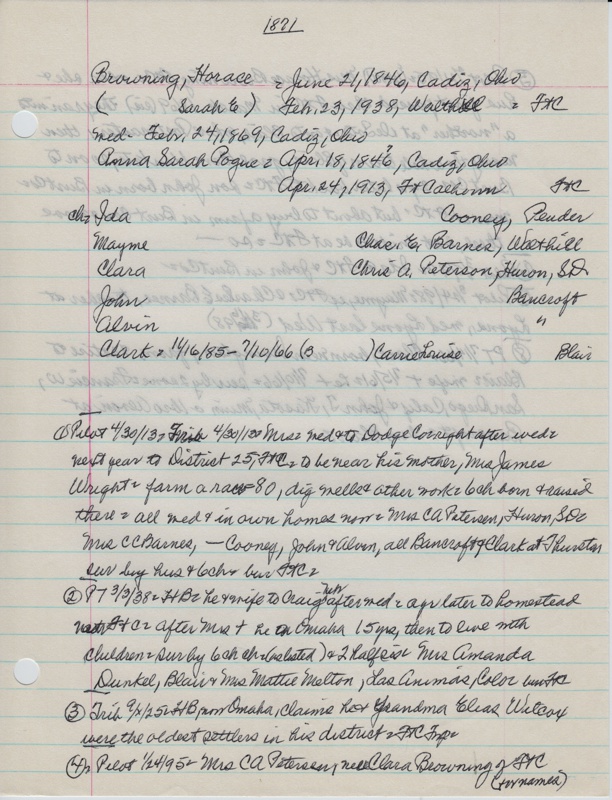 1871
Browning, Horace = June 21, 1846, Cadiz, Ohio
( Sarah E ) Feb. 23, 1938, Walthill = FtC
med - Feb. 24, 1869, Cadiz, Ohio
Anna Sarah Pogue = Apr. 18, 1846?, Cadiz, Ohio
Apr. 24, 1913, Ft Calhoun FtC
ch = Ida Cooney, Pender
Mayme Chas. E. Barnes, Walthill
Clara Chris A. Peterson, Huron, S.D.
John Bancroft
Alvin "
Clark = 11/16/85 - 7/10/66 (B ) Carrie Louise Blair
① Pilot 4/30/13 = Trib 4/30/13 = Mrs = med & to Dodge Co right after wed =
next year to District 25, FtC = to be near his mother, Mrs James
Wright = farm a raw 80, dig wells & other work = 6 ch born & raised
there = all med & in own homes now = Mrs CA Petersen, Huron, SD =
Mrs CC Barnes, — Cooney, John & Alvin, all Bancroft & Clark at Thurston
sur by hus & 6 ch = bur FtC =
② PT 3/3/38 = HB = he & wife to Craig Neb after med = a yr later to homestead
FtC = after Mrs + he Omaha 15 yrs, then to live with
children = sur by 6 ch (as listed) & 2 half sis = Mrs Amanda
Dunkel, Blair & Mrs Mattie Melton, Las Animas, Color bur FtC
③ Trib 9/x/25 = HB, now Omaha, claims he & Grandma Elias Wilcox
were the oldest settlers in his district = FtC Twp =
④ Pilot 1/24/95 = Mrs CA Petersen, nee Clara Browning of FtC